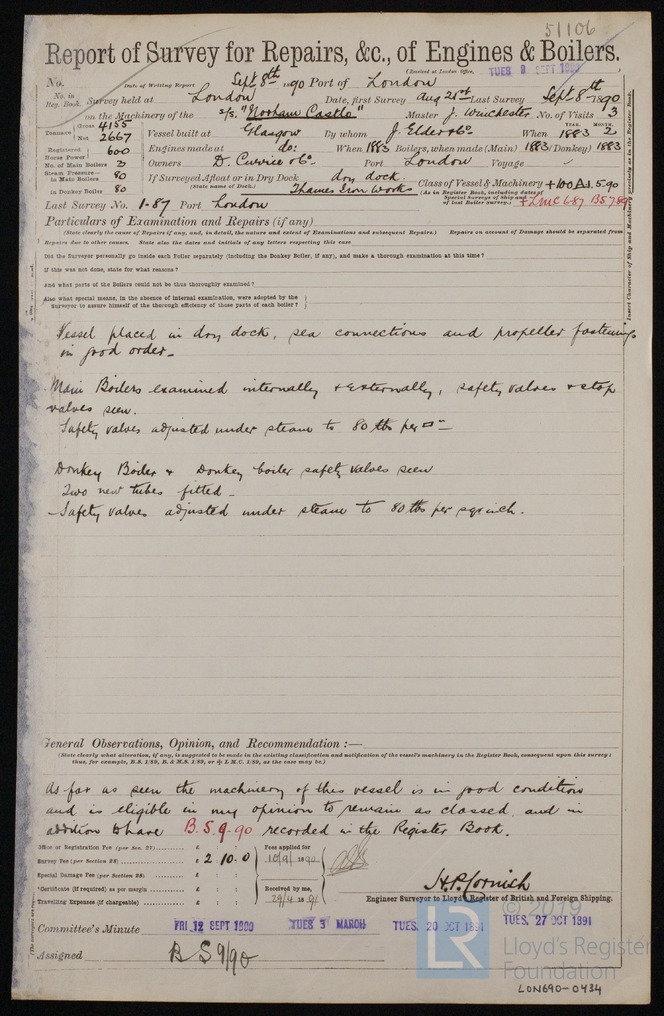 51106
Report of Survey for Repairs, &c., of Engines & Boilers.
(Received at London Office, TUES 9 SEPT 1890
No. Date of Writing Report Sept 8th 1890 Port of London
No. in Reg. Book. Survey held at London Date, first Survey Aug 21st Last Survey Sept 8th 1890
on the Machinery of the s/s. "Norham Castle" Master J. Winchester No. of Visits 3
Tonnage Gross 4155 Net 2667 Vessel built at Glasgow By whom J. Elder & Co When YEAR. 1883 MONTH. 2
Registered Horse Power 600 Engines made at do: When 1883 Boilers, when made (Main) 1883 (Donkey) 1883
No. of Main Boilers Owners D. Currie & Co Port London Voyage
Steam Pressure— in Main Boilers 80 If Surveyed Afloat or in Dry Dock dry dock. Class of Vessel & Machinery +100A1.5.90
in Donkey Boiler 80 (State name of Dock.) Thames Iron Works (As in Register Book, including dates of Special Surveys of Ship and of last Boiler Survey.) +LMC 6.87 BS 7.89
Last Survey No. 1-87 Port London
Particulars of Examination and Repairs (if any)
(State clearly the cause of Repairs if any, and, in detail, the nature and extent of Examinations and subsequent Repairs.) Repairs on account of Damage should be separated from
Repairs due to other causes. State also the dates and initials of any letters respecting this case
Did the Surveyor personally go inside each Boiler separately (including the Donkey Boiler, if any), and make a thorough examination at this time?
If this was not done, state for what reasons?
And what parts of the Boilers could not be thus thoroughly examined?
Also what special means, in the absence of internal examination, were adopted by the
Surveyor to assure himself of the thorough efficiency of those parts of each boiler?
Insert Character of Ship and Machinery precisely as in the Register Book.
Vessel placed in dry dock, sea connections and propeller fastenings
in good order -
Main Boilers examined internally & externally, safety valves & stop
valves seen.
Safety valves adjusted under steam to 80 lbs per □"
Donkey Boiler & Donkey boiler safety valves seen
Two new tubes fitted -
Safety valves adjusted under steam to 80 lbs per sq inch.
General Observations, Opinion, and Recommendation :—
(State clearly what alteration, if any, is suggested to be made in the existing classification and notification of the vessel's machinery in the Register Book, consequent upon this survey;
thus, for example, B.S. 1/89, B. & M.S. 1/89, or ✠ L.M.C. 1/89, as the case may be.)
As far as seen the machinery of this vessel is in good condition
and is eligible in my opinion to remain as classed, and in
addition to have B.S. 9-90 recorded in the Register Book.
Office or Registration Fee (per Sec. 27) £ : : Fees applied for
Survey Fee (per Section 28) £ 2 10 : 0 10/9/1890
Special Damage Fee (per Section 28) £ : :
*Certificate (if required) as per margin £ : : Received by me,
Travelling Expenses (if chargeable) £ : : 29/4 1891
H. P. Cornish
Engineer Surveyor to Lloyd's Register of British and Foreign Shipping.
Committee's Minute FRI. 12 SEPT 1890 TUES 3 MARCH TUES. 20 OCT 1891 TUES. 27 OCT 1891
Assigned B S 9/90
© 2019
LR
Lloyd's Register
Foundation
LON690-0434